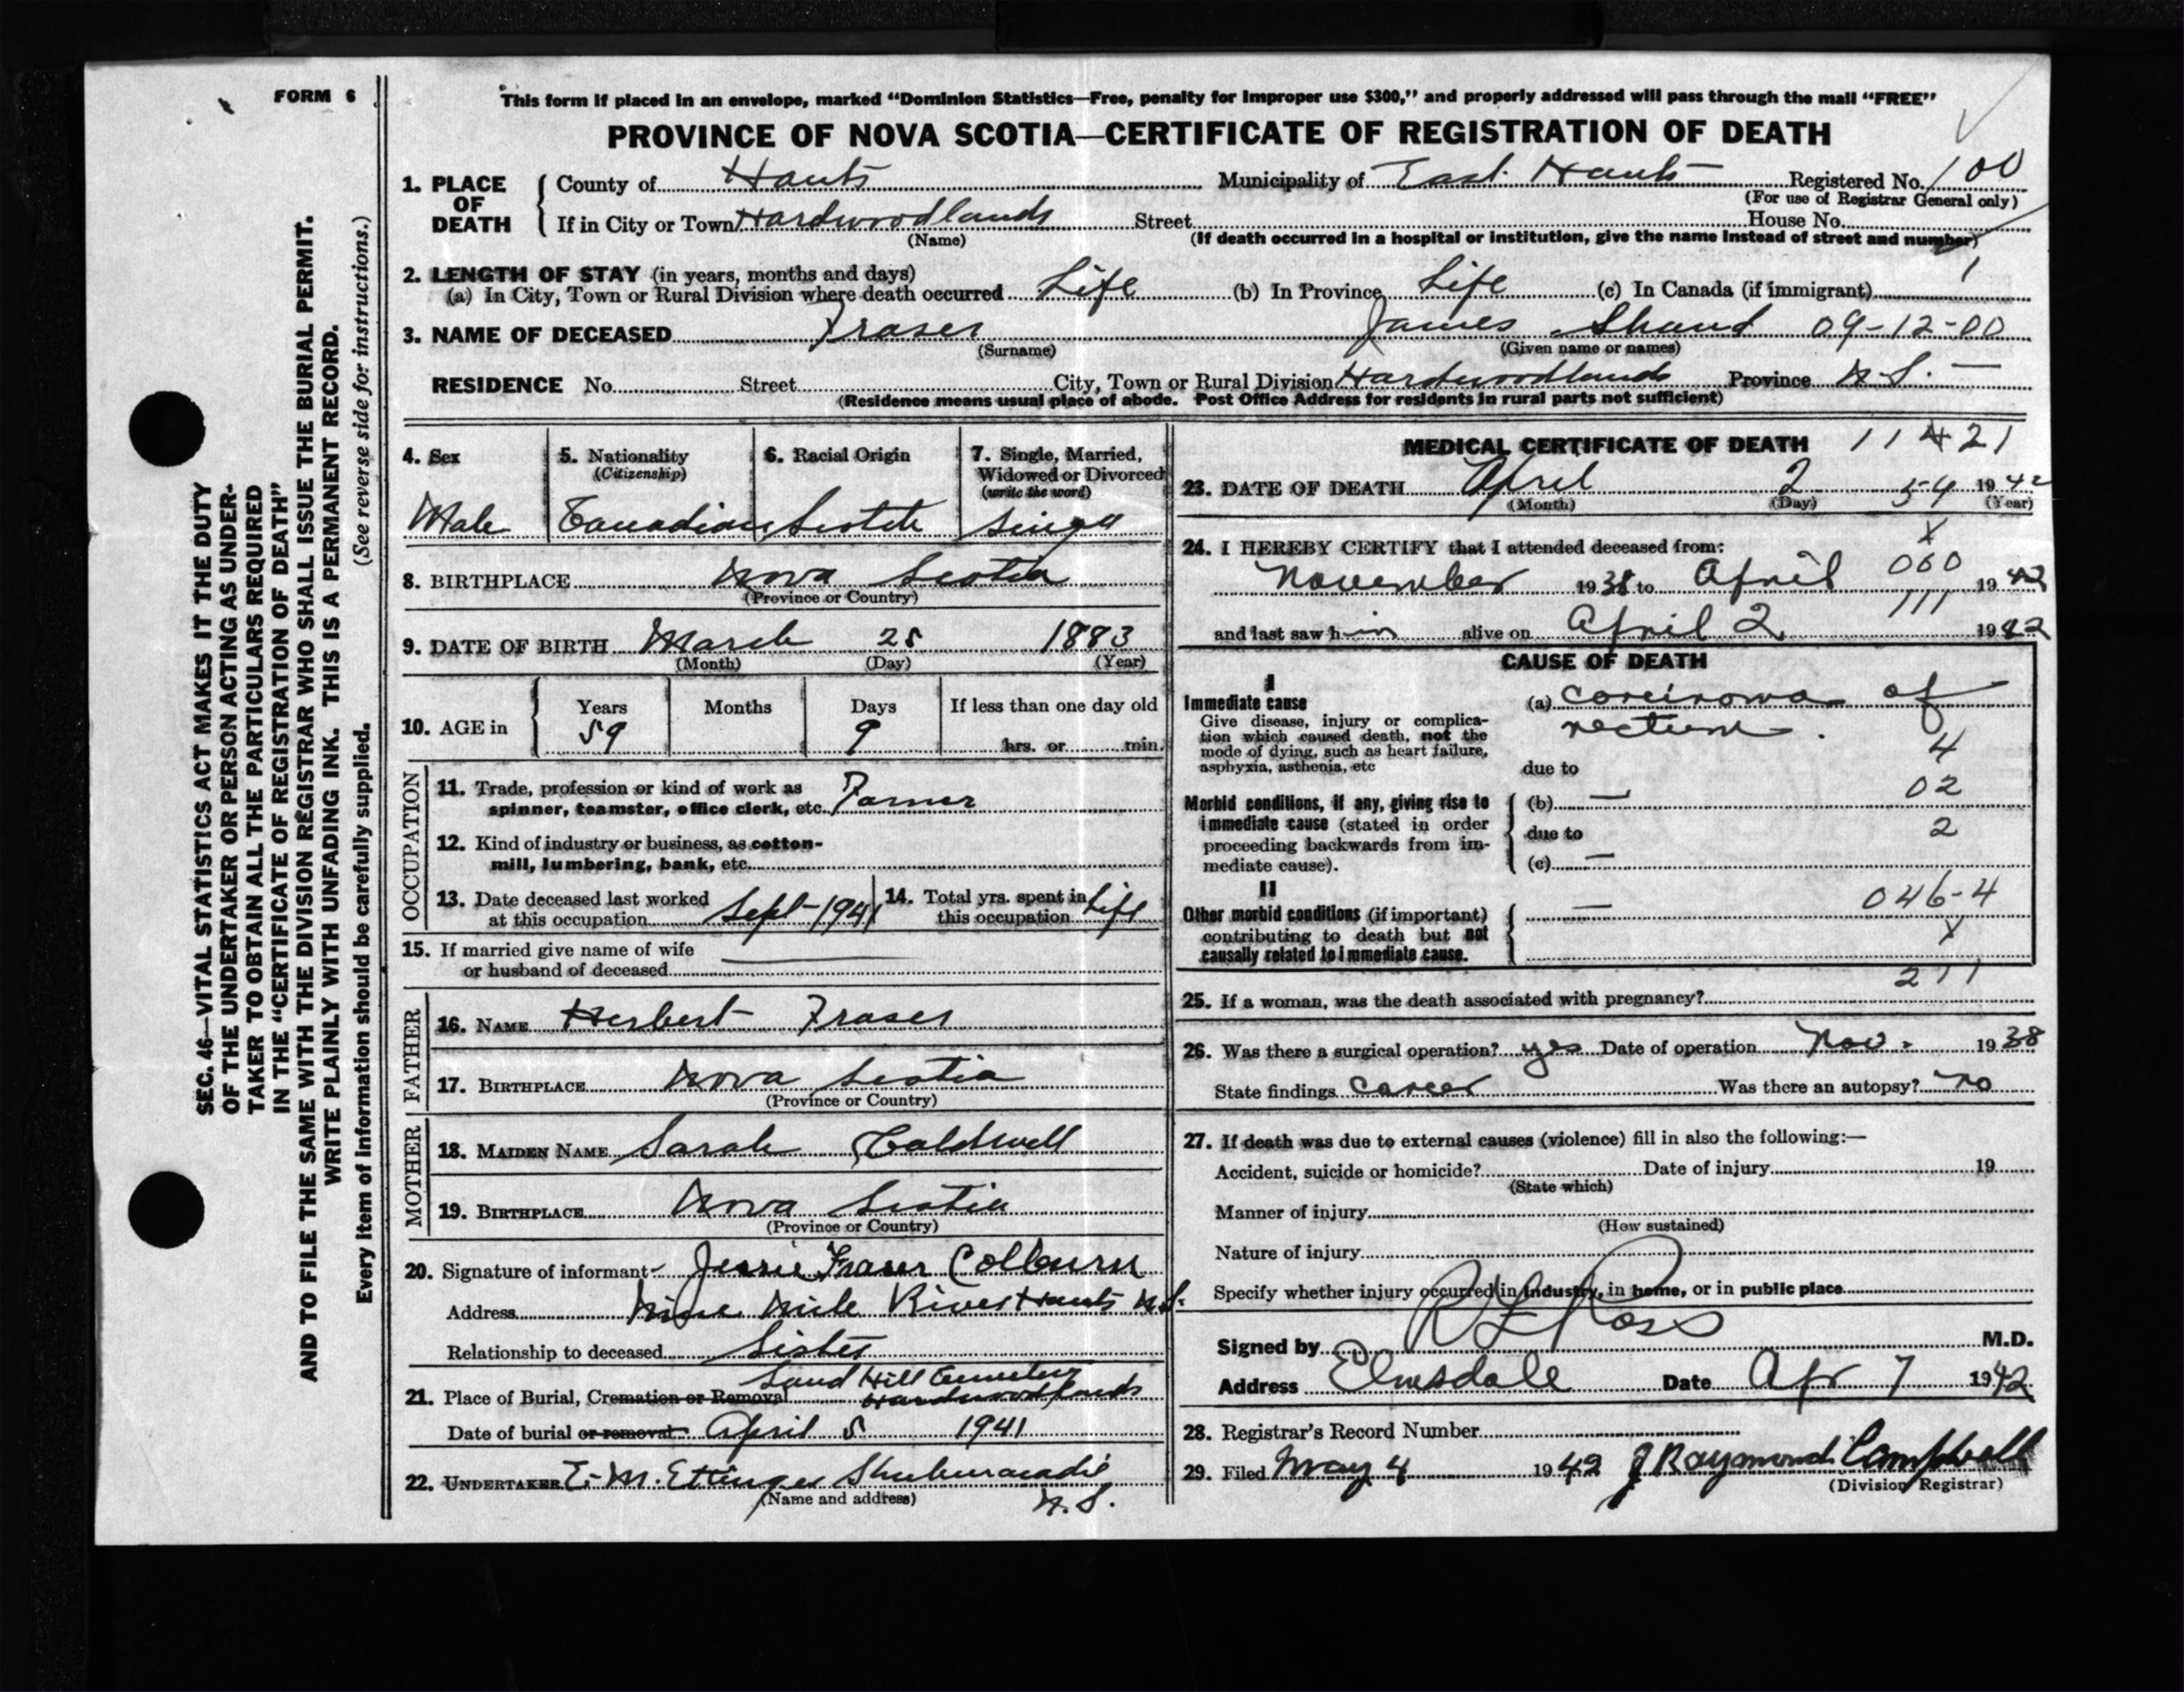 FORM 6
This form if placed in an envelope, marked "Dominion Statistics—Free, penalty for improper use $300," and properly addressed will pass through the mail "FREE"
PROVINCE OF NOVA SCOTIA—CERTIFICATE OF REGISTRATION OF DEATH
SEC. 46—VITAL STATISTICS ACT MAKES IT THE DUTY
OF THE UNDERTAKER OR PERSON ACTING AS UNDER-
TAKER TO OBTAIN ALL THE PARTICULARS REQUIRED
IN THE "CERTIFICATE OF REGISTRATION OF DEATH"
AND TO FILE THE SAME WITH THE DIVISION REGISTRAR WHO SHALL ISSUE THE BURIAL PERMIT.
WRITE PLAINLY WITH UNFADING INK. THIS IS A PERMANENT RECORD.
Every item of information should be carefully supplied. (See reverse side for instructions.)
1. PLACE OF DEATH County of Hants Municipality of East Hants Registered No. 100
(For use of Registrar General only)
If in City or Town Hardwoodlands Street House No.
(Name) (If death occurred in a hospital or institution, give the name instead of street and number)
2. LENGTH OF STAY (in years, months and days) 1
(a) In City, Town or Rural Division where death occurred Life (b) In Province Life (c) In Canada (if immigrant)
3. NAME OF DECEASED Fraser James Shand 09-12-00
(Surname) (Given name or names)
RESIDENCE No. Street City, Town or Rural Division Hardwoodlands Province N.S. —
(Residence means usual place of abode. Post Office Address for residents in rural parts not sufficient)
4. Sex 5. Nationality (Citizenship) 6. Racial Origin 7. Single, Married, Widowed or Divorced (write the word)
Male Canadian Scotch Single
8. BIRTHPLACE Nova Scotia
(Province or Country)
9. DATE OF BIRTH March 25 1883
(Month) (Day) (Year)
10. AGE in Years Months Days If less than one day old
59 9 hrs. or min.
OCCUPATION
11. Trade, profession or kind of work as
spinner, teamster, office clerk, etc. Farmer
12. Kind of industry or business, as cotton-
mill, lumbering, bank, etc.
13. Date deceased last worked
at this occupation Sept 1941
14. Total yrs. spent in
this occupation Life
15. If married give name of wife
or husband of deceased
FATHER
16. NAME Herbert Fraser
17. BIRTHPLACE Nova Scotia
(Province or Country)
MOTHER
18. MAIDEN NAME Sarah Caldwell
19. BIRTHPLACE Nova Scotia
(Province or Country)
20. Signature of informant Jessie Fraser Colburn
Address Nine Mile River Hants N.S.
Relationship to deceased Sister
Sand Hill Cemetery
21. Place of Burial, Cremation or Removal Hardwoodlands
Date of burial or removal April 5 1941
22. UNDERTAKER E. M. Ettinger Shubenacadie
(Name and address) N.S.
MEDICAL CERTIFICATE OF DEATH 11421
23. DATE OF DEATH April 2 54 1942
(Month) (Day) (Year)
X
24. I HEREBY CERTIFY that I attended deceased from: 060
November 1938 to April 1942
111
and last saw him alive on April 2 1942
CAUSE OF DEATH
I
Immediate cause
Give disease, injury or complica-
tion which caused death, not the
mode of dying, such as heart failure,
asphyxia, asthenia, etc
(a) carcinoma of
rectum.
4
due to
02
Morbid conditions, if any, giving rise to
immediate cause (stated in order
proceeding backwards from im-
mediate cause).
(b) —
due to 2
(c) —
II
Other morbid conditions (if important)
contributing to death but not
causally related to immediate cause.
— 046-4
X
211
25. If a woman, was the death associated with pregnancy?
26. Was there a surgical operation? yes Date of operation Nov. 1938
State findings cancer Was there an autopsy? no
27. If death was due to external causes (violence) fill in also the following:—
Accident, suicide or homicide? Date of injury 19
(State which)
Manner of injury
(How sustained)
Nature of injury
Specify whether injury occurred in industry, in home, or in public place
Signed by R L Ross M.D.
Address Elmsdale Date Apr 7 1942
28. Registrar's Record Number
29. Filed May 4 1942 J Raymond Campbell
(Division Registrar)